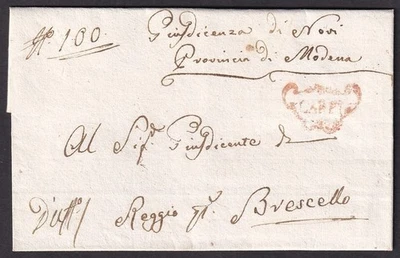 N.º 100.
Giusdicenza di Novi
Provincia di Modena
CARPI
Al Sig.r Giusdicente di
D'uff.º Reggio p. Brescello